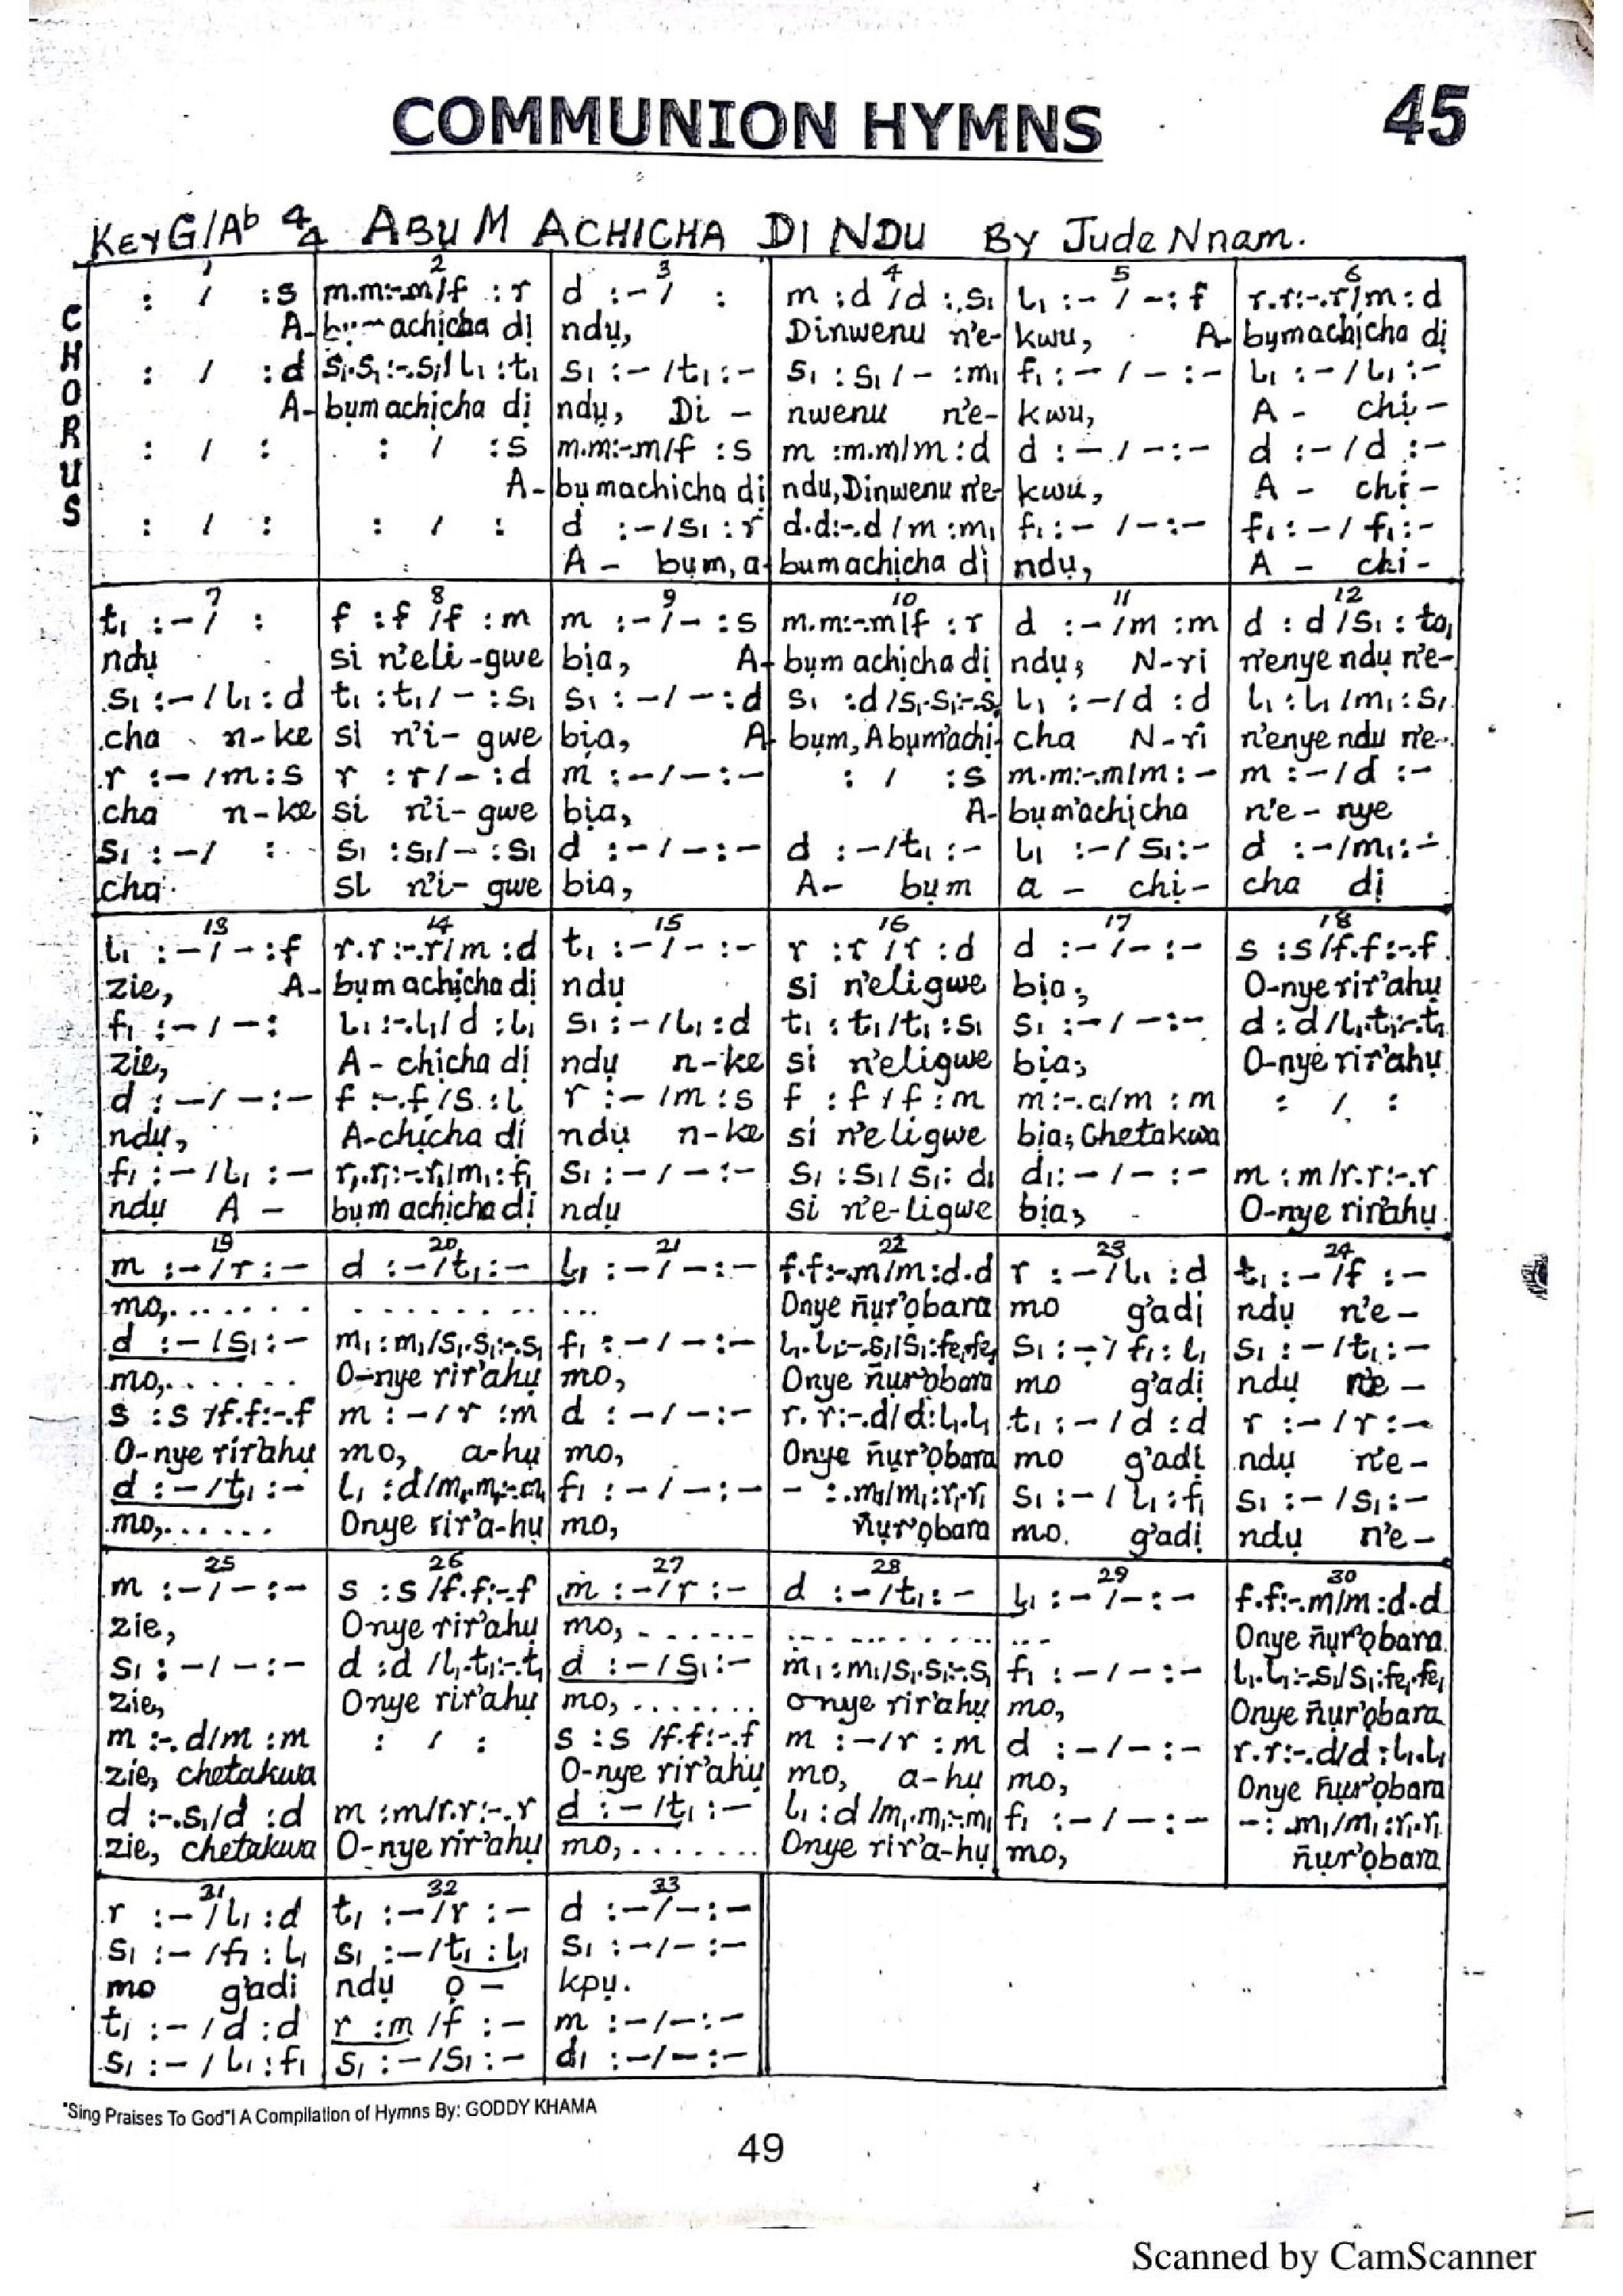 COMMUNION HYMNS 45
KEY G/Ab 4/4 ABU M ACHICHA DI NDU By Jude Nnam.
CHORUS
1 2 3 4 5 6
: / :s m.m:-.m/f :r d :-/ : m :d /d :.s₁ l₁ :- / -:f r.r:-.r/m :d
A- achicha dị ndụ, Dinwenu n'e- kwu, A- bụmachịcha dị
: / :d s₁.s₁:-.s₁/l₁ :t₁ s₁ :-/t₁ :- s₁ :s₁/- :m₁ f₁ :- / - :- l₁ :-/l₁ :-
A- bụmachịcha dị ndụ, Di - nwenu n'e- kwu, A - chị-
: / : : / :s m.m:-.m/f :s m :m.m/m :d d :- / -:- d :-/d :-
A- bụmachicha dị ndu, Dinwenu n'e- kwu, A - chị-
: / : : / : d :-/s₁ :r d.d:-.d/m :m₁ f₁ :- /-:- f₁ :-/ f₁ :-
A - bụm, a- bumachicha di ndụ, A - chi-
7 8 9 10 11 12
t₁ :-/ : f :f /f :m m :-/- :s m.m:-.m/f :r d :-/m :m d :d /s₁ :ta₁
ndụ si n'eli-gwe bịa, A- bụm achịcha dị ndụ; N-ri n'enye ndụ n'e-
s₁ :-/l₁ :d t₁ :t₁/- :s₁ s₁ :-/-:d s₁ :d/s₁.s₁:-.s₁ l₁ :-/d :d l₁ :l₁/m₁ :s₁
cha n-ke si n'i- gwe bịa, A- bụm, Abụm'achi- cha N-ri n'enye ndu n'e-
r :-/m :s r :r/- :d m :-/-:- : / :s m.m:-.m/m :- m :-/d :-
cha n-ke si n'i- gwe bịa, A- bụm'achịcha n'e - nye
s₁ :-/ : s₁ :s₁/- :s₁ d :-/-:- d :-/t₁ :- l₁ :-/s₁ :- d :-/m₁ :-
cha si n'i- gwe bia, A- bụm a - chi- cha dị
13 14 15 16 17 18
l₁ :-/-:f r.r:-.r/m :d t₁ :-/-:- r :r /r :d d :-/-:- s :s/f.f:-.f
zie, A- bụm achịcha di ndụ si n'eligwe bịa; O-nye rir'ahụ
f₁ :-/-: l₁ :-.l₁/d :l₁ s₁ :-/l₁ :d t₁ :t₁/t₁ :s₁ s₁ :-/-:- d :d/l₁.t₁:-.t₁
zie, A- chicha dị ndụ n-ke si n'eligwe bịa; O-nye rir'ahụ
d :-/-:- f :-.f/s :l r :-/m :s f :f/f :m m :-.d/m :m : / :
ndụ, A-chịcha dị ndụ n-ke si n'eligwe bịa; Chetakwa
f₁ :-/l₁ :- r₁.r₁:-.r₁/m₁ :f₁ s₁ :-/-:- s₁ :s₁/s₁ :d₁ d₁ :-/-:- m :m/r.r:-.r
ndụ A - bụm achịcha dị ndụ si n'e-ligwe bịa; O-nye rir'ahụ
19 20 21 22 23 24
m :-/r :- d :-/t₁ :- l₁ :-/-:- f.f:-.m/m :d.d r :-/l₁ :d t₁ :-/f :-
mo, . . . . . . Onye ñụr'ọbara mo g'adị ndụ n'e-
d :-/s₁ :- m₁ :m₁/s₁.s₁:-.s₁ f₁ :-/-:- l₁.l₁:-.s₁/s₁ :fe₁.fe₁ s₁ :-/f₁ :l₁ s₁ :-/t₁ :-
mo, . . . . . . O-nye rir'ahụ mo, Onye ñụr'ọbara mo g'adị ndụ n'e-
s :s/f.f:-.f m :-/r :m d :-/-:- r.r:-.d/d :l₁.l₁ t₁ :-/d :d r :-/r :-
O-nye rir'ahụ mo, a-hụ mo, Onye ñụr'ọbara mo g'adị ndụ n'e-
d :-/t₁ :- l₁ :d/m₁.m₁:-.m₁ f₁ :-/-:- - :.m₁/m₁ :r₁.r₁ s₁ :-/l₁ :f₁ s₁ :-/s₁ :-
mo, . . . . . . Onye rir'a-hụ mo, ñụr'ọbara mo. g'adị ndụ n'e-
25 26 27 28 29 30
m :-/-:- s :s/f.f:-.f m :-/r :- d :-/t₁ :- l₁ :-/-:- f.f:-.m/m :d.d
zie, Onye rir'ahụ mo, . . . . . . Onye ñụr'ọbara
s₁ :-/-:- d :d/l₁.t₁:-.t₁ d :-/s₁ :- m₁ :m₁/s₁.s₁:-.s₁ f₁ :-/-:- l₁.l₁:-.s₁/s₁ :fe₁.fe₁
zie, Onye rir'ahụ mo, . . . . . . . onye rir'ahụ mo, Onye ñụr'ọbara
m :-.d/m :m : / : s :s/f.f:-.f m :-/r :m d :-/-:- r.r:-.d/d :l₁.l₁
zie, chetakwa O-nye rir'ahụ mo, a-hụ mo, Onye ñụr'ọbara
d :-.s₁/d :d m :m/r.r:-.r d :-/t₁ :- l₁ :d/m₁.m₁:-.m₁ f₁ :-/-:- - :.m₁/m₁ :r₁.r₁
zie, chetakwa O-nye rir'ahụ mo, . . . . . . . Onye rir'a-hụ mo, ñụr'ọbara
31 32 33
r :-/l₁ :d t₁ :-/r :- d :-/-:-
s₁ :-/f₁ :l₁ s₁ :-/t₁ :l₁ s₁ :-/-:-
mo g'adi ndụ ọ - kpụ.
t₁ :-/d :d r :m/f :- m :-/-:-
s₁ :-/l₁ :f₁ s₁ :-/s₁ :- d₁ :-/-:-
"Sing Praises To God"l A Compilation of Hymns By: GODDY KHAMA
49
Scanned by CamScanner